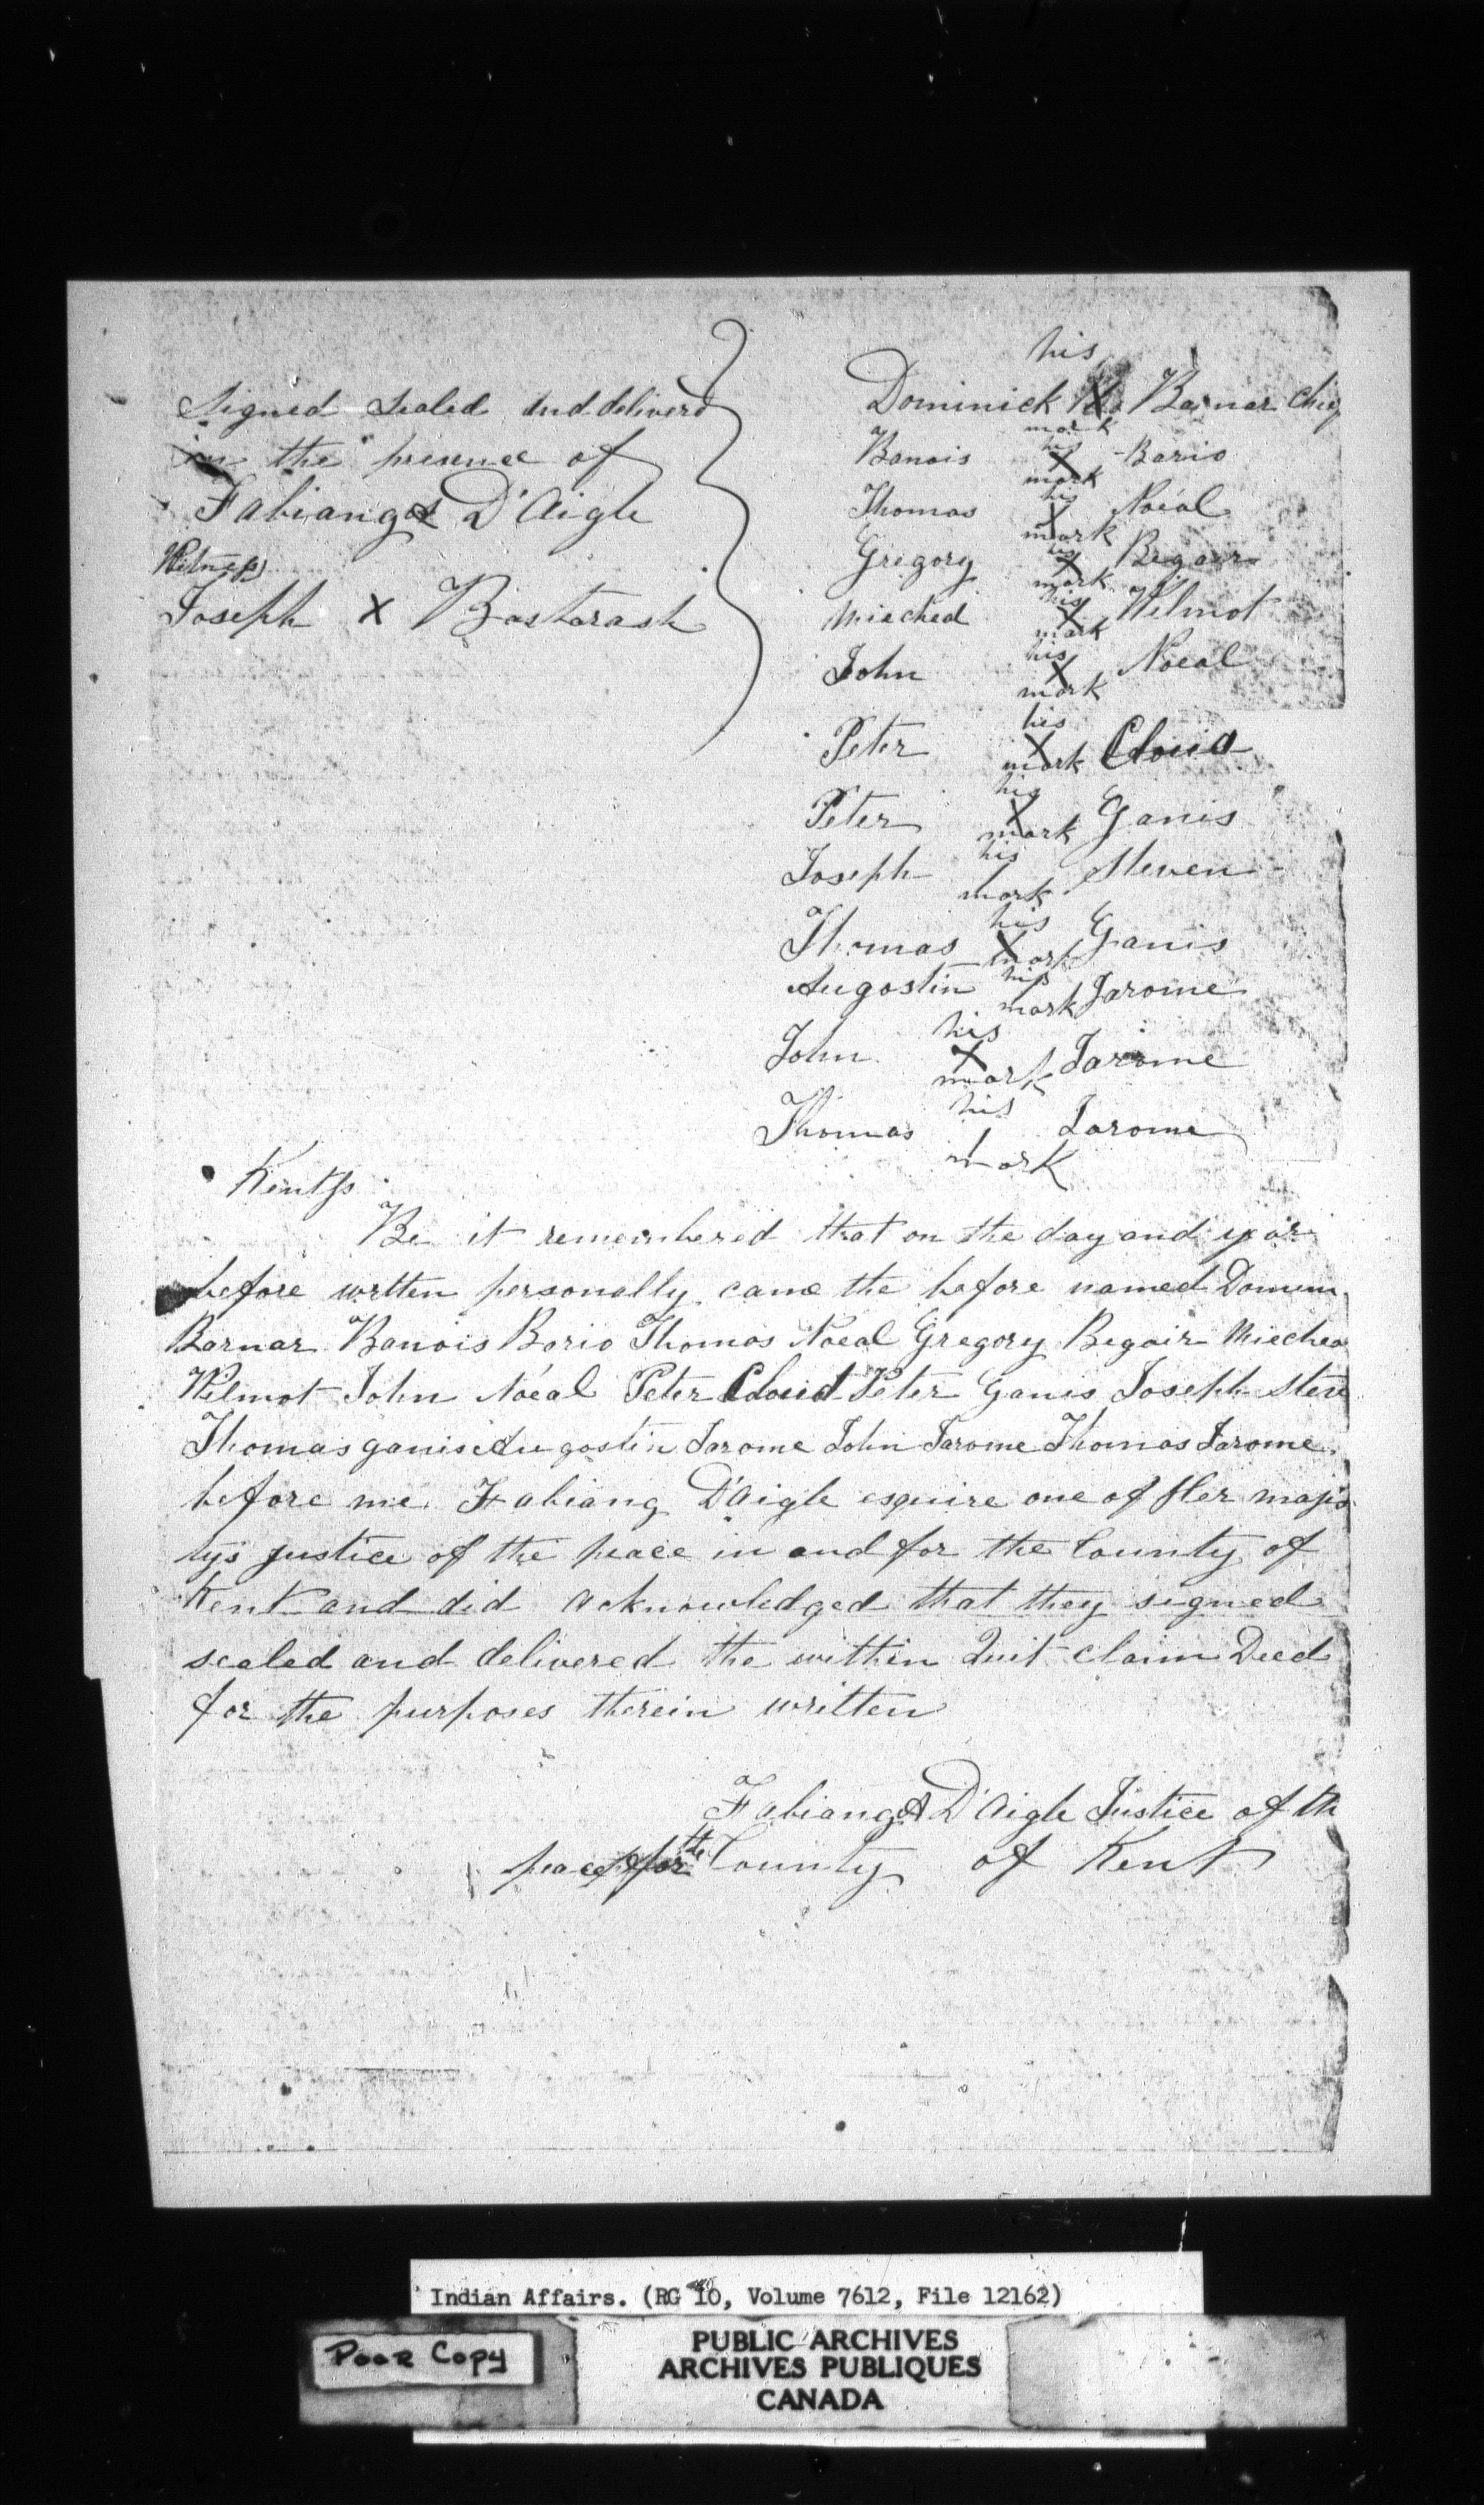 Signed Sealed and deliverd
in the presence of
Fabiang A D'Aigle
Witness
Joseph X Bastarash
his
Dominick X Barnar Chief
mark
his
Banois X Bario
mark
his
Thomas X Noeal
mark
his
Gregory X Begair
mark
his
Mieched X Wilmot
mark
his
John X Noeal
mark
his
Peter X Cloud
mark
his
Peter X Ganis
mark
his
Joseph Steven
mark
his
Thomas X Ganis
mark
his
Augostin Jarome
mark
his
John X Jarome
mark
his
Thomas Jarome
mark
Kent ss
Be it remembered that on the day and year
before wrtten personally came the before named
Barnar Banois Borio Thomas Noeal Gregory Begair
Wilmot John Noéal Peter Cloud Peter Ganis Joseph Steve
Thomas ganis Augostin Jarome John Jarome Thomas Jarome
before me Fabiang D'Aigle esquire one of Her majes
tys justice of the peace in and for the County of
Kent and did acknowledged that they signed
sealed and delivered the within Quit claim Deed
for the purposes therein written
Fabiang A D'Aigle Justice of th
peace for the County of Kent
Indian Affairs. (RG 10, Volume 7612, File 12162)
Poor Copy
PUBLIC ARCHIVES
ARCHIVES PUBLIQUES
CANADA